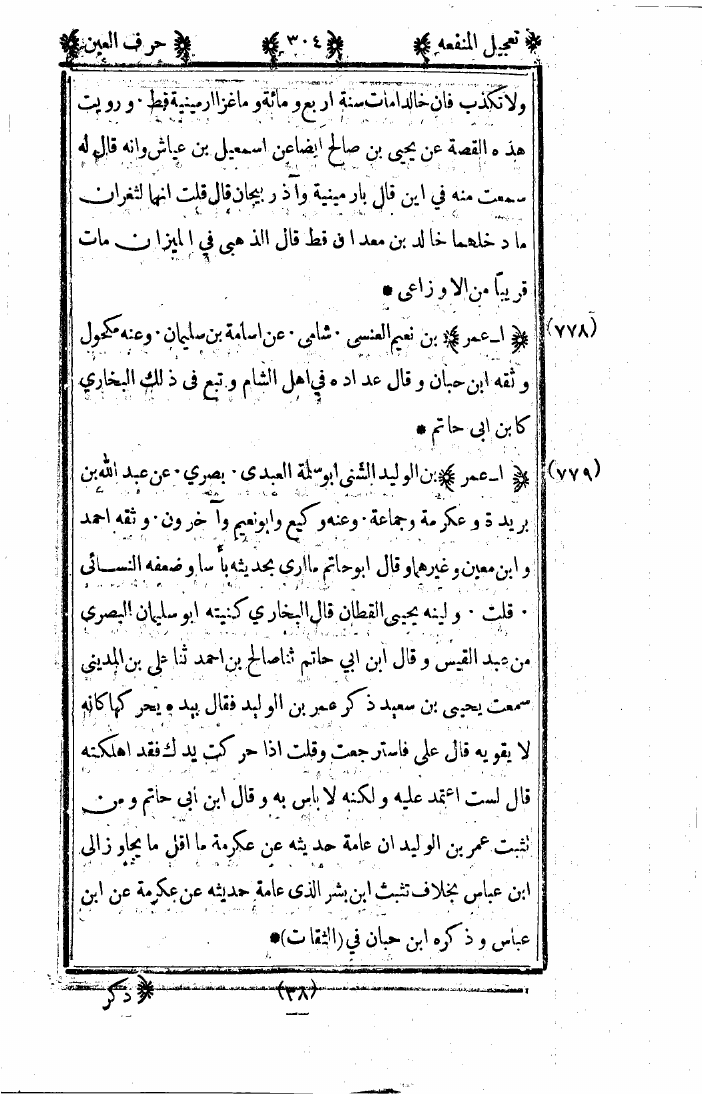 تعجيل المنفعه ٣٠٤ حرف العين
ولا تكذب فان خالدا مات سنة اربع و مائة و ما غزا ارمينية قط ٠ و رويت
هذه القصة عن يحيى بن صالح ايضا عن اسمعيل بن عياش وانه قال له
سمعت منه في اين قال بارمينية وآذربيجان قال قلت انهما لثغران
ما دخلهما خالد بن معدان قط قال الذهبي في الميزان مات
قريبًا من الاوزاعى *
(٧٧٨) ا-عمر بن نعيم العنسى ٠ شامى ٠ عن اسامة بن سليمان ٠ وعنه مكحول
وثقه ابن حبان و قال عداده في اهل الشام و تبع فى ذلك البخاري
كابن ابى حاتم *
(٧٧٩) ا-عمر بن الوليد الشنى ابو سلمة العبدى ٠ بصري ٠ عن عبد الله بن
بريدة و عكرمة وجماعة ٠ وعنه وكيع وابو نعيم وآخرون ٠ وثقه احمد
و ابن معين و غيرهما و قال ابو حاتم ما ارى بحديثه بأسا و ضعفه النسائى
٠ قلت ٠ ولينه يحيى القطان قال البخاري كنيته ابو سليمان البصري
من عبد القيس و قال ابن ابي حاتم ثنا صالح بن احمد ثنا على بن المدينى
سمعت يحيى بن سعيد ذكر عمر بن الوليد فقال بيده يحركها كانه
لا يقويه قال على فاسترجعت وقلت اذا حركت يدك فقد اهلكته
قال لست اعتمد عليه و لكنه لا باس به و قال ابن ابى حاتم و من
تثبت عمر بن الوليد ان عامة حديثه عن عكرمة ما اقل ما يجاوز الى
ابن عباس بخلاف تثبت ابن بشر الذى عامة حديثه عن عكرمة عن ابن
عباس و ذكره ابن حبان في (الثقات) *
(٣٨) ذكر